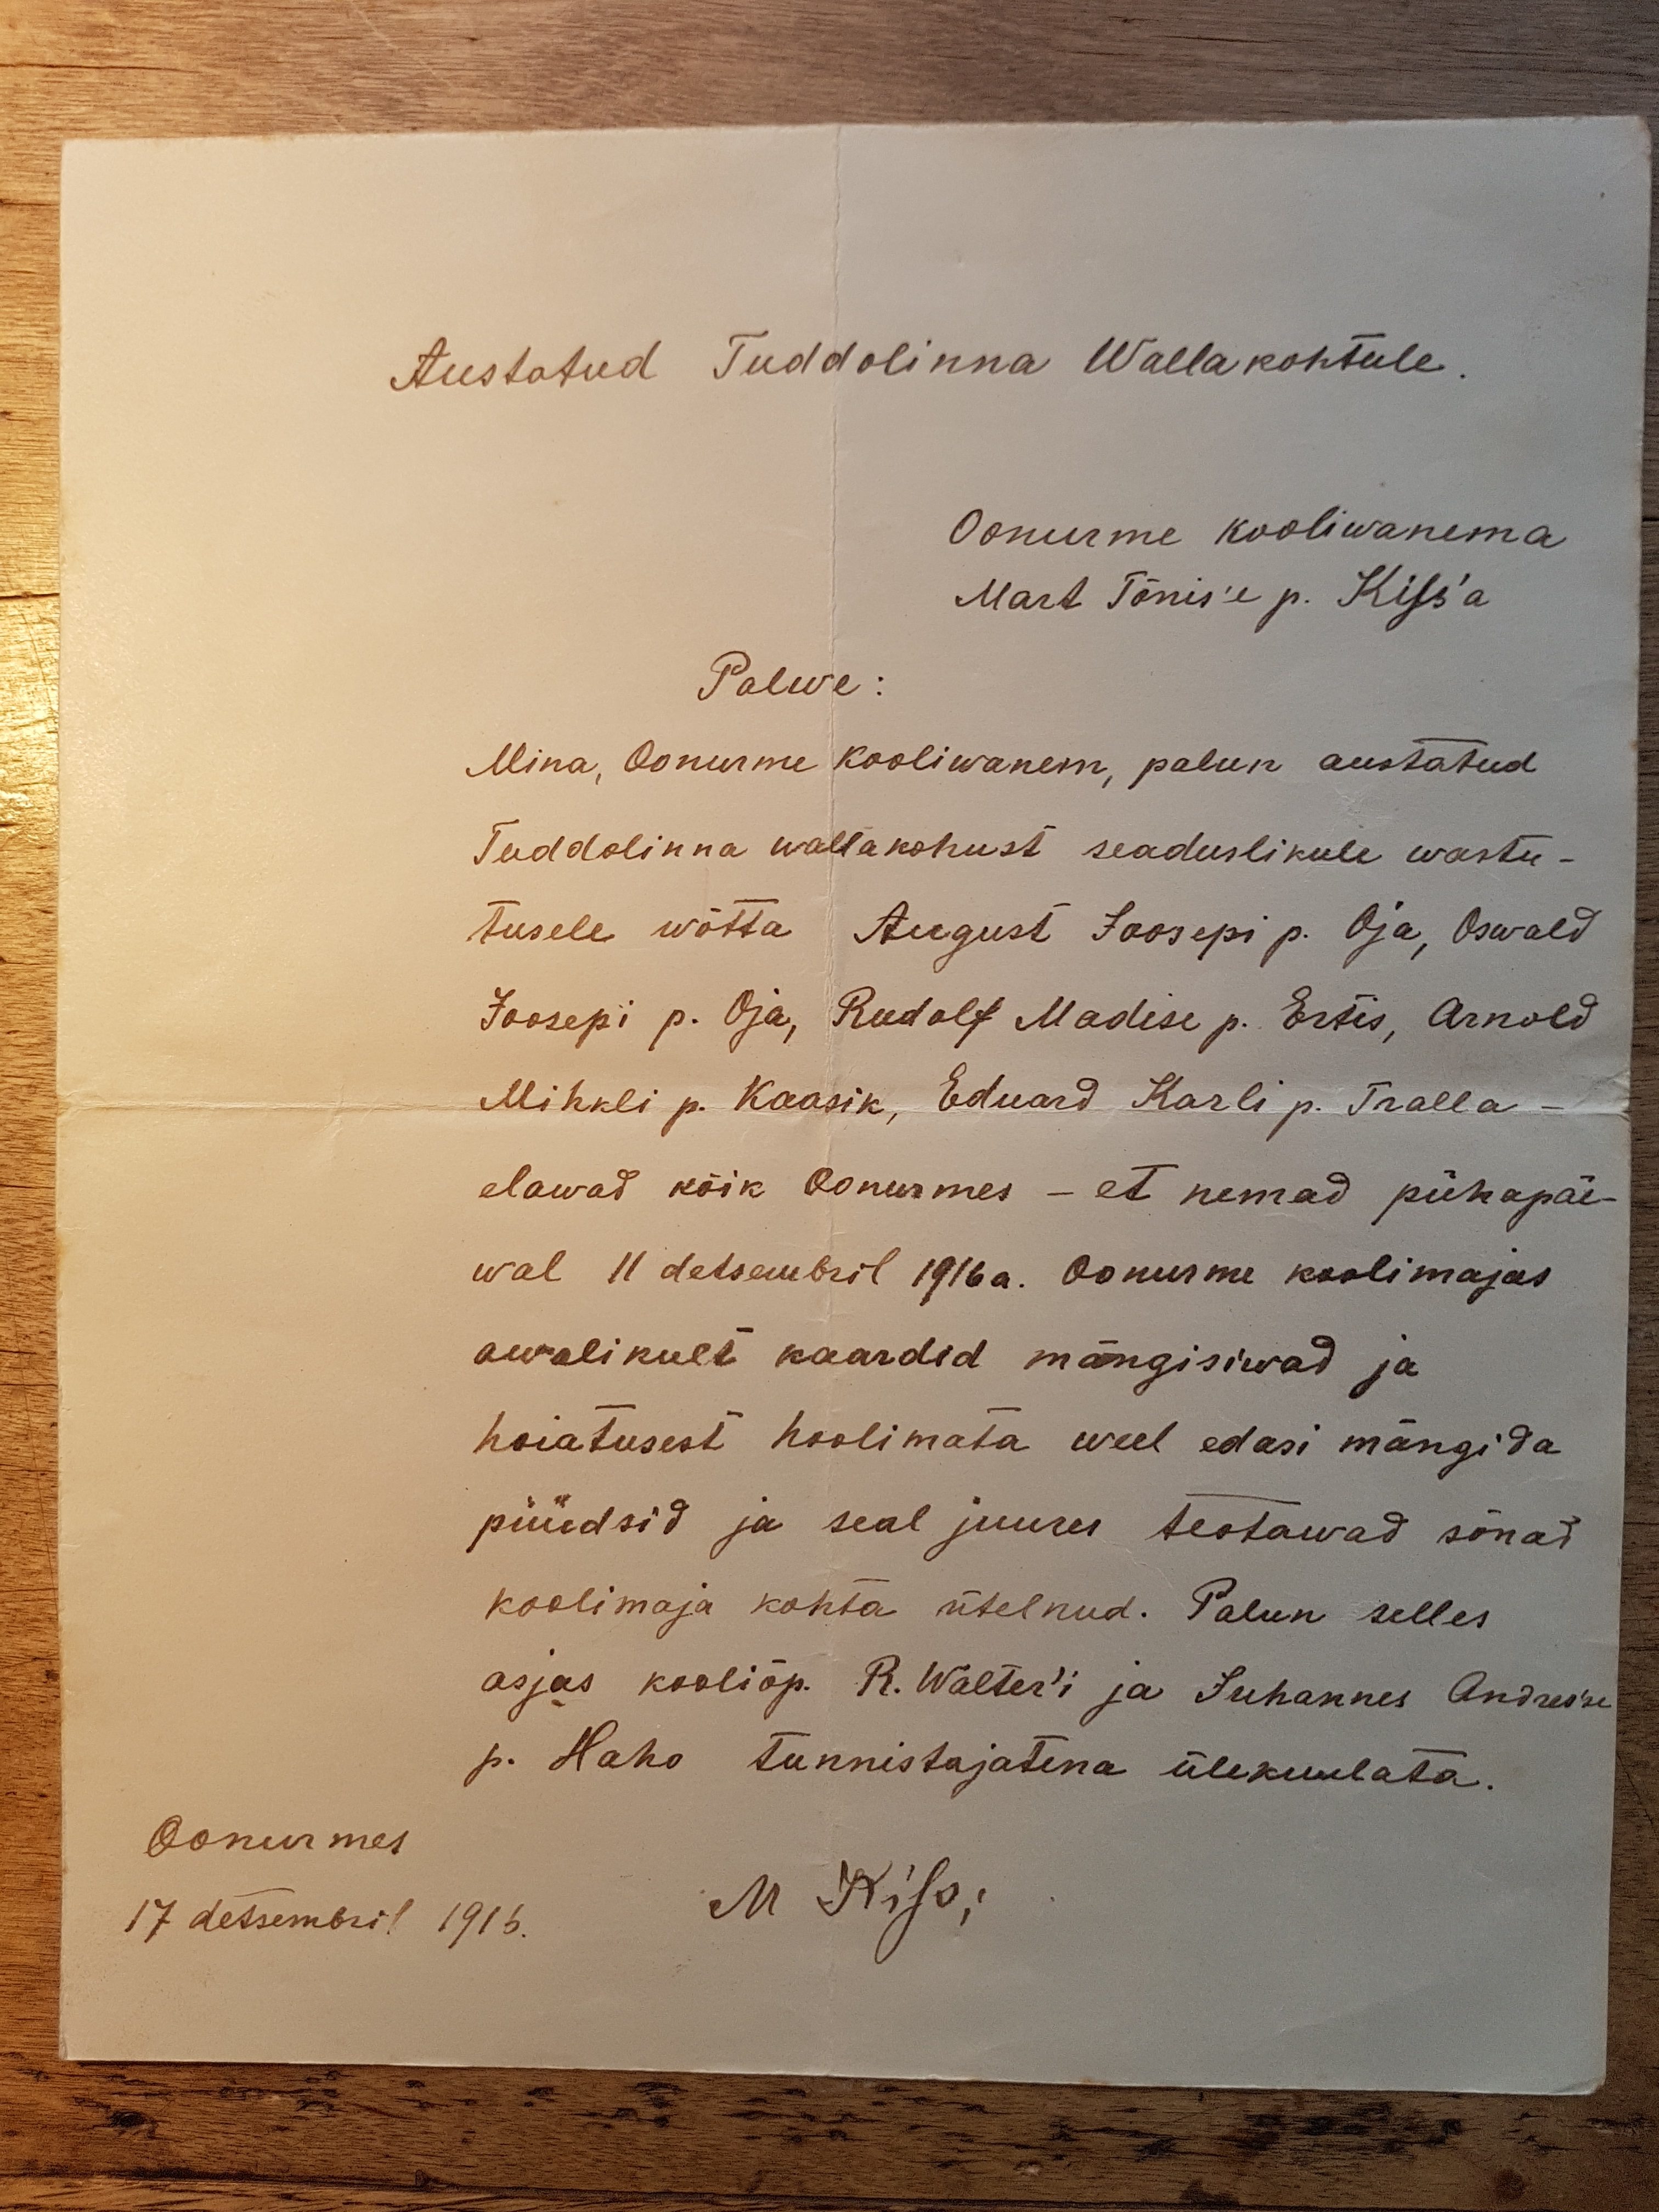 Austatud Tuddolinna Wallakohtule.
Oonurme kooliwanema
Mart Tõnis'e p. Kiſs'a
Palwe:
Mina, Oonurme kooliwanem, palun austatud
Tuddolinna wallakohust seaduslikule wastu-
tusele wõtta August Joosepi p. Oja, Oswald
Joosepi p. Oja, Rudolf Madise p. Ertis, Arnold
Mihkli p. Kaasik, Eduard Karli p. Tralla –
elawad kõik Oonurmes – et nemad pühapäe-
wal 11 detsembril 1916 a. Oonurme koolimajas
awalikult kaardid mängisiwad ja
hoiatusest hoolimata weel edasi mängida
püüdsid ja seal juures teotawad sõnad
koolimaja kohta ütelnud. Palun selles
asjas kooliõp. R. Walter'i ja Juhannes Andres'se
p. Haho tunnistajatena ülekuulata.
Oonurmes
17 detsembril 1916.
M Kiſs;